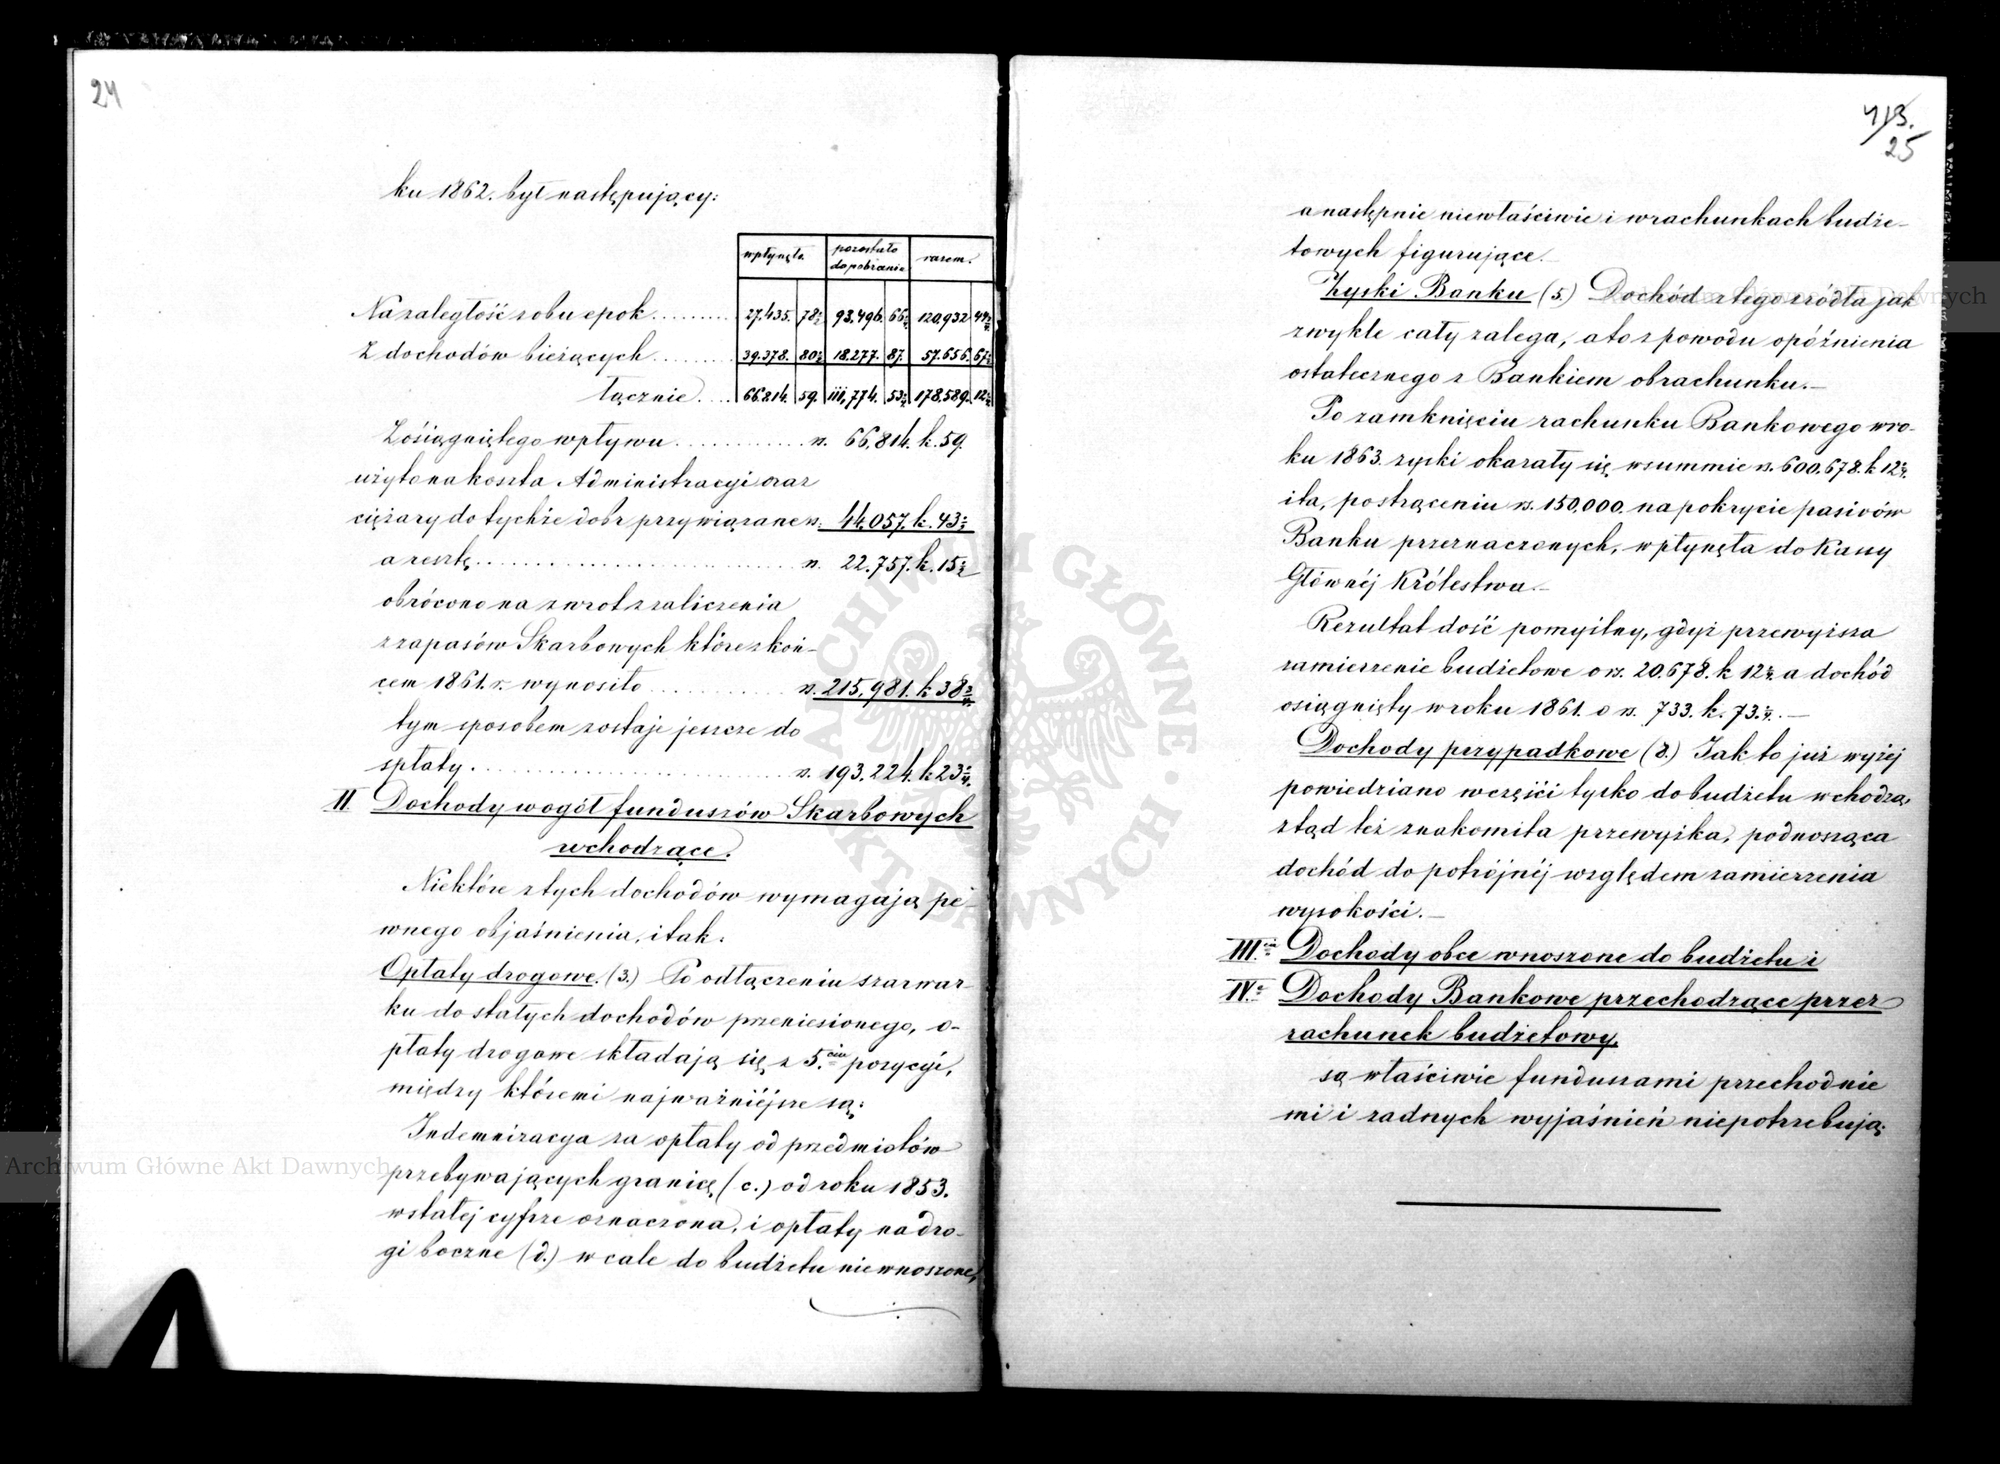 24
ku 1862. był następujący:
wpłynęło. pozostało do pobrania razem.
Na zaległość z obu epok 27.435. 78½ 93.496. 66 120.932 44
Z dochodów bieżących 39.378. 80½ 18.277. 87. 57.656. 67½
łącznie 66.814. 59. 111,774. 53½ 178.589. 12½
Z osiągniętego wpływu rs. 66,814. k. 59.
użyto na koszta Administracyi oraz
ciężary do tychże dobr przywiązane rs. 44.057. k. 43½
a resztę rs. 22.757. k. 15½
obrócono na zwrot zaliczenia
z zapasów Skarbowych które z koń-
cem 1861. r. wynosiło rs. 215,981. k 38
tym sposobem zostaje jeszcze do
spłaty rs. 193.224. k 23
II Dochody wogół funduszów Skarbowych
wchodzące.
Niektóre z tych dochodów wymagają pe-
wnego objaśnienia, i tak:
Opłaty drogowe. (3.) Po odłączeniu szarwar-
ku do stałych dochodów przeniesionego, o-
płaty drogowe składają się z 5.ciu pozycyi,
między któremi najważniejsze są:
Indemnizacya za opłaty od przedmiotów
przebywających granicę (c.) od roku 1853.
w stałej cyfrze oznaczona, i opłaty na dro-
gi boczne (d.) w cale do budżetu nie wnoszone,
25
a następnie niewłaściwie i w rachunkach budże-
towych figurujące.—
Zyski Banku (5.) Dochód z tego źródła jak
zwykle cały zalega, a to z powodu opóźnienia
ostatecznego z Bankiem obrachunku.—
Po zamknięciu rachunku Bankowego w ro-
ku 1863. zyski okazały się w summie rs. 600.678. k 12½.
i ta, po strąceniu rs. 150,000. na pokrycie pasivów
Banku przeznaczonych, wpłynęła do Kassy
Głównéj Królestwa.—
Rezultat dość pomyślny, gdyż przewyższa
zamierzenie budżetowe o rs. 20.678. k 12½. a dochód
osiągnięty w roku 1861. o rs. 733. k. 73.½.—
Dochody przypadkowe (8.) Jak to już wyżej
powiedziano w części tylko do budżetu wchodzą,
ztąd też znakomita przewyżka, podnosząca
dochód do potrójnéj względem zamierzenia
wysokości.—
III.cie Dochody obce wnoszone do budżetu i
IV.te Dochody Bankowe przechodzące przez
rachunek budżetowy.
są właściwie funduszami przechodnie
mi i żadnych wyjaśnień nie potrzebują.
ARCHIWUM GŁÓWNE AKT DAWNYCH
Archiwum Główne Akt Dawnych
Archiwum Główne Akt Dawnych